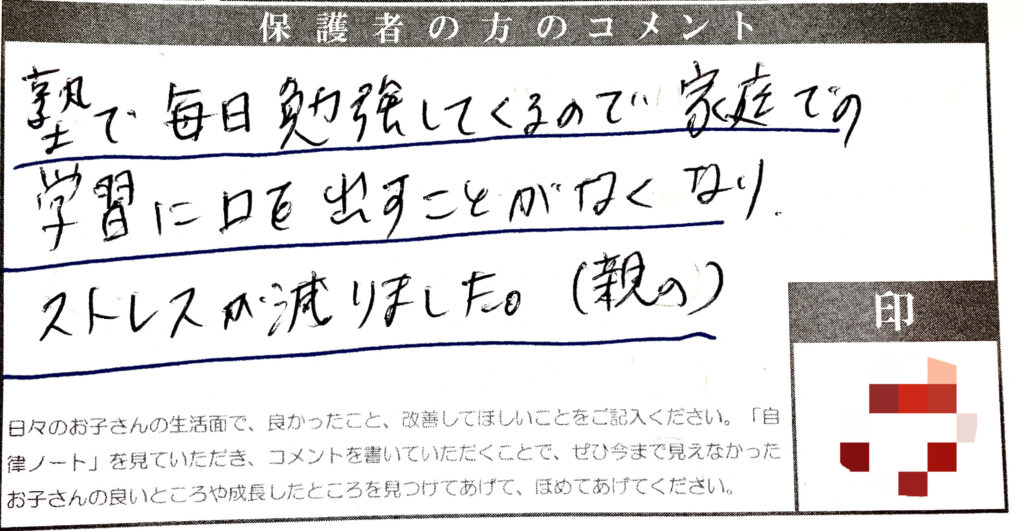 保護者の方のコメント
塾で毎日勉強してくるので家庭での
学習に口を出すことがなくなり、
ストレスが減りました。(親の)
印
日々のお子さんの生活面で、良かったこと、改善してほしいことをご記入ください。「自
律ノート」を見ていただき、コメントを書いていただくことで、ぜひ今まで見えなかった
お子さんの良いところや成長したところを見つけてあげて、ほめてあげてください。